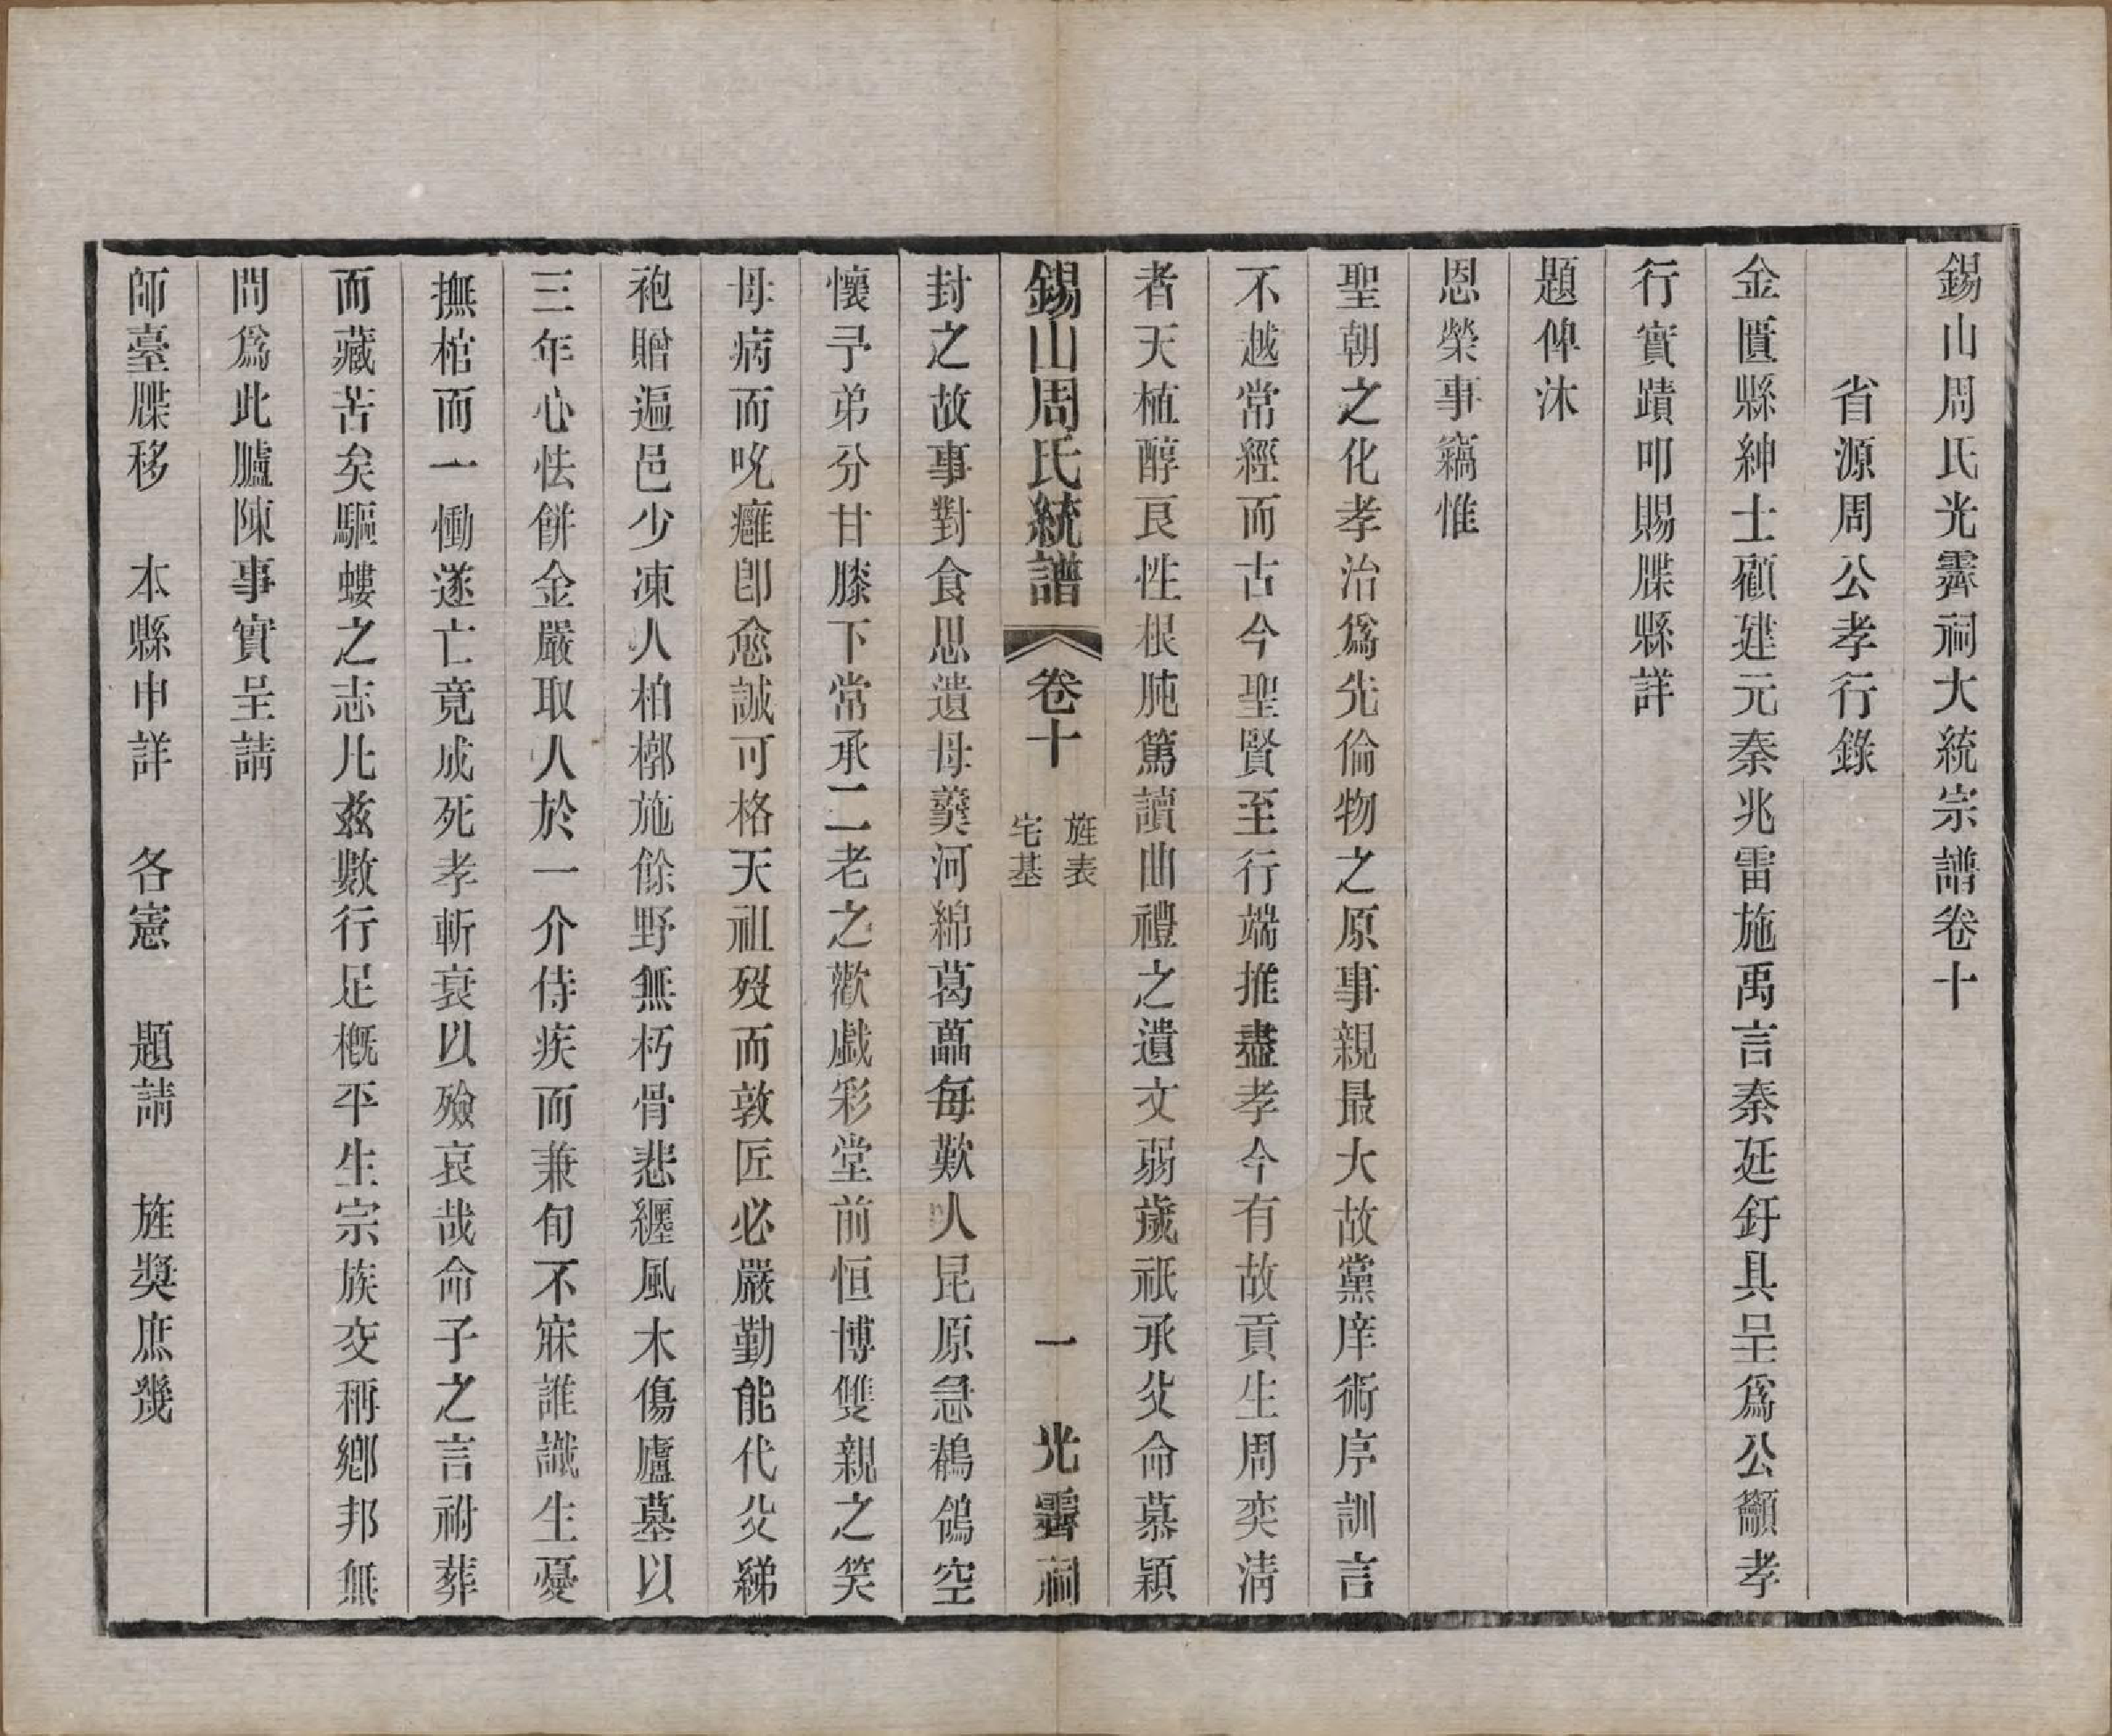 錫山周氏光霽祠大統宗譜卷十
省源周公孝行錄
金匱縣紳士顧建元秦兆雷施禹言秦廷釪具呈爲公籲孝
行實蹟叩賜牒縣詳
題俾沐
恩榮事竊惟
聖朝之化孝治爲先倫物之原事親最大故黨庠術序訓言
不越常經而古今聖賢至行端推盡孝今有故貢生周奕淸
者天植醇良性根肫篤讀曲禮之遺文弱歲祇承父命慕穎
錫山周氏統譜 卷十 旌表 宅基 一 光霽祠
封之故事對食思遺母羹河綿葛藟每歎人昆原急鶺鴒空
懷予弟分甘膝下常承二老之歡戲彩堂前恒博雙親之笑
母病而吮癰卽愈誠可格天祖歿而敦匠必嚴勤能代父綈
袍贈遍邑少凍人柏槨施餘野無朽骨悲纏風木傷廬墓以
三年心怯餅金嚴取人於一介侍疾而兼旬不寐誰識生憂
撫棺而一慟遂亡竟成死孝斬衰以殮哀哉命子之言祔葬
而藏苦矣驅螻之志凡茲數行足槪平生宗族交稱鄕邦無
間爲此臚陳事實呈請
師臺牒移 本縣申詳 各憲 題請 旌奬庶幾